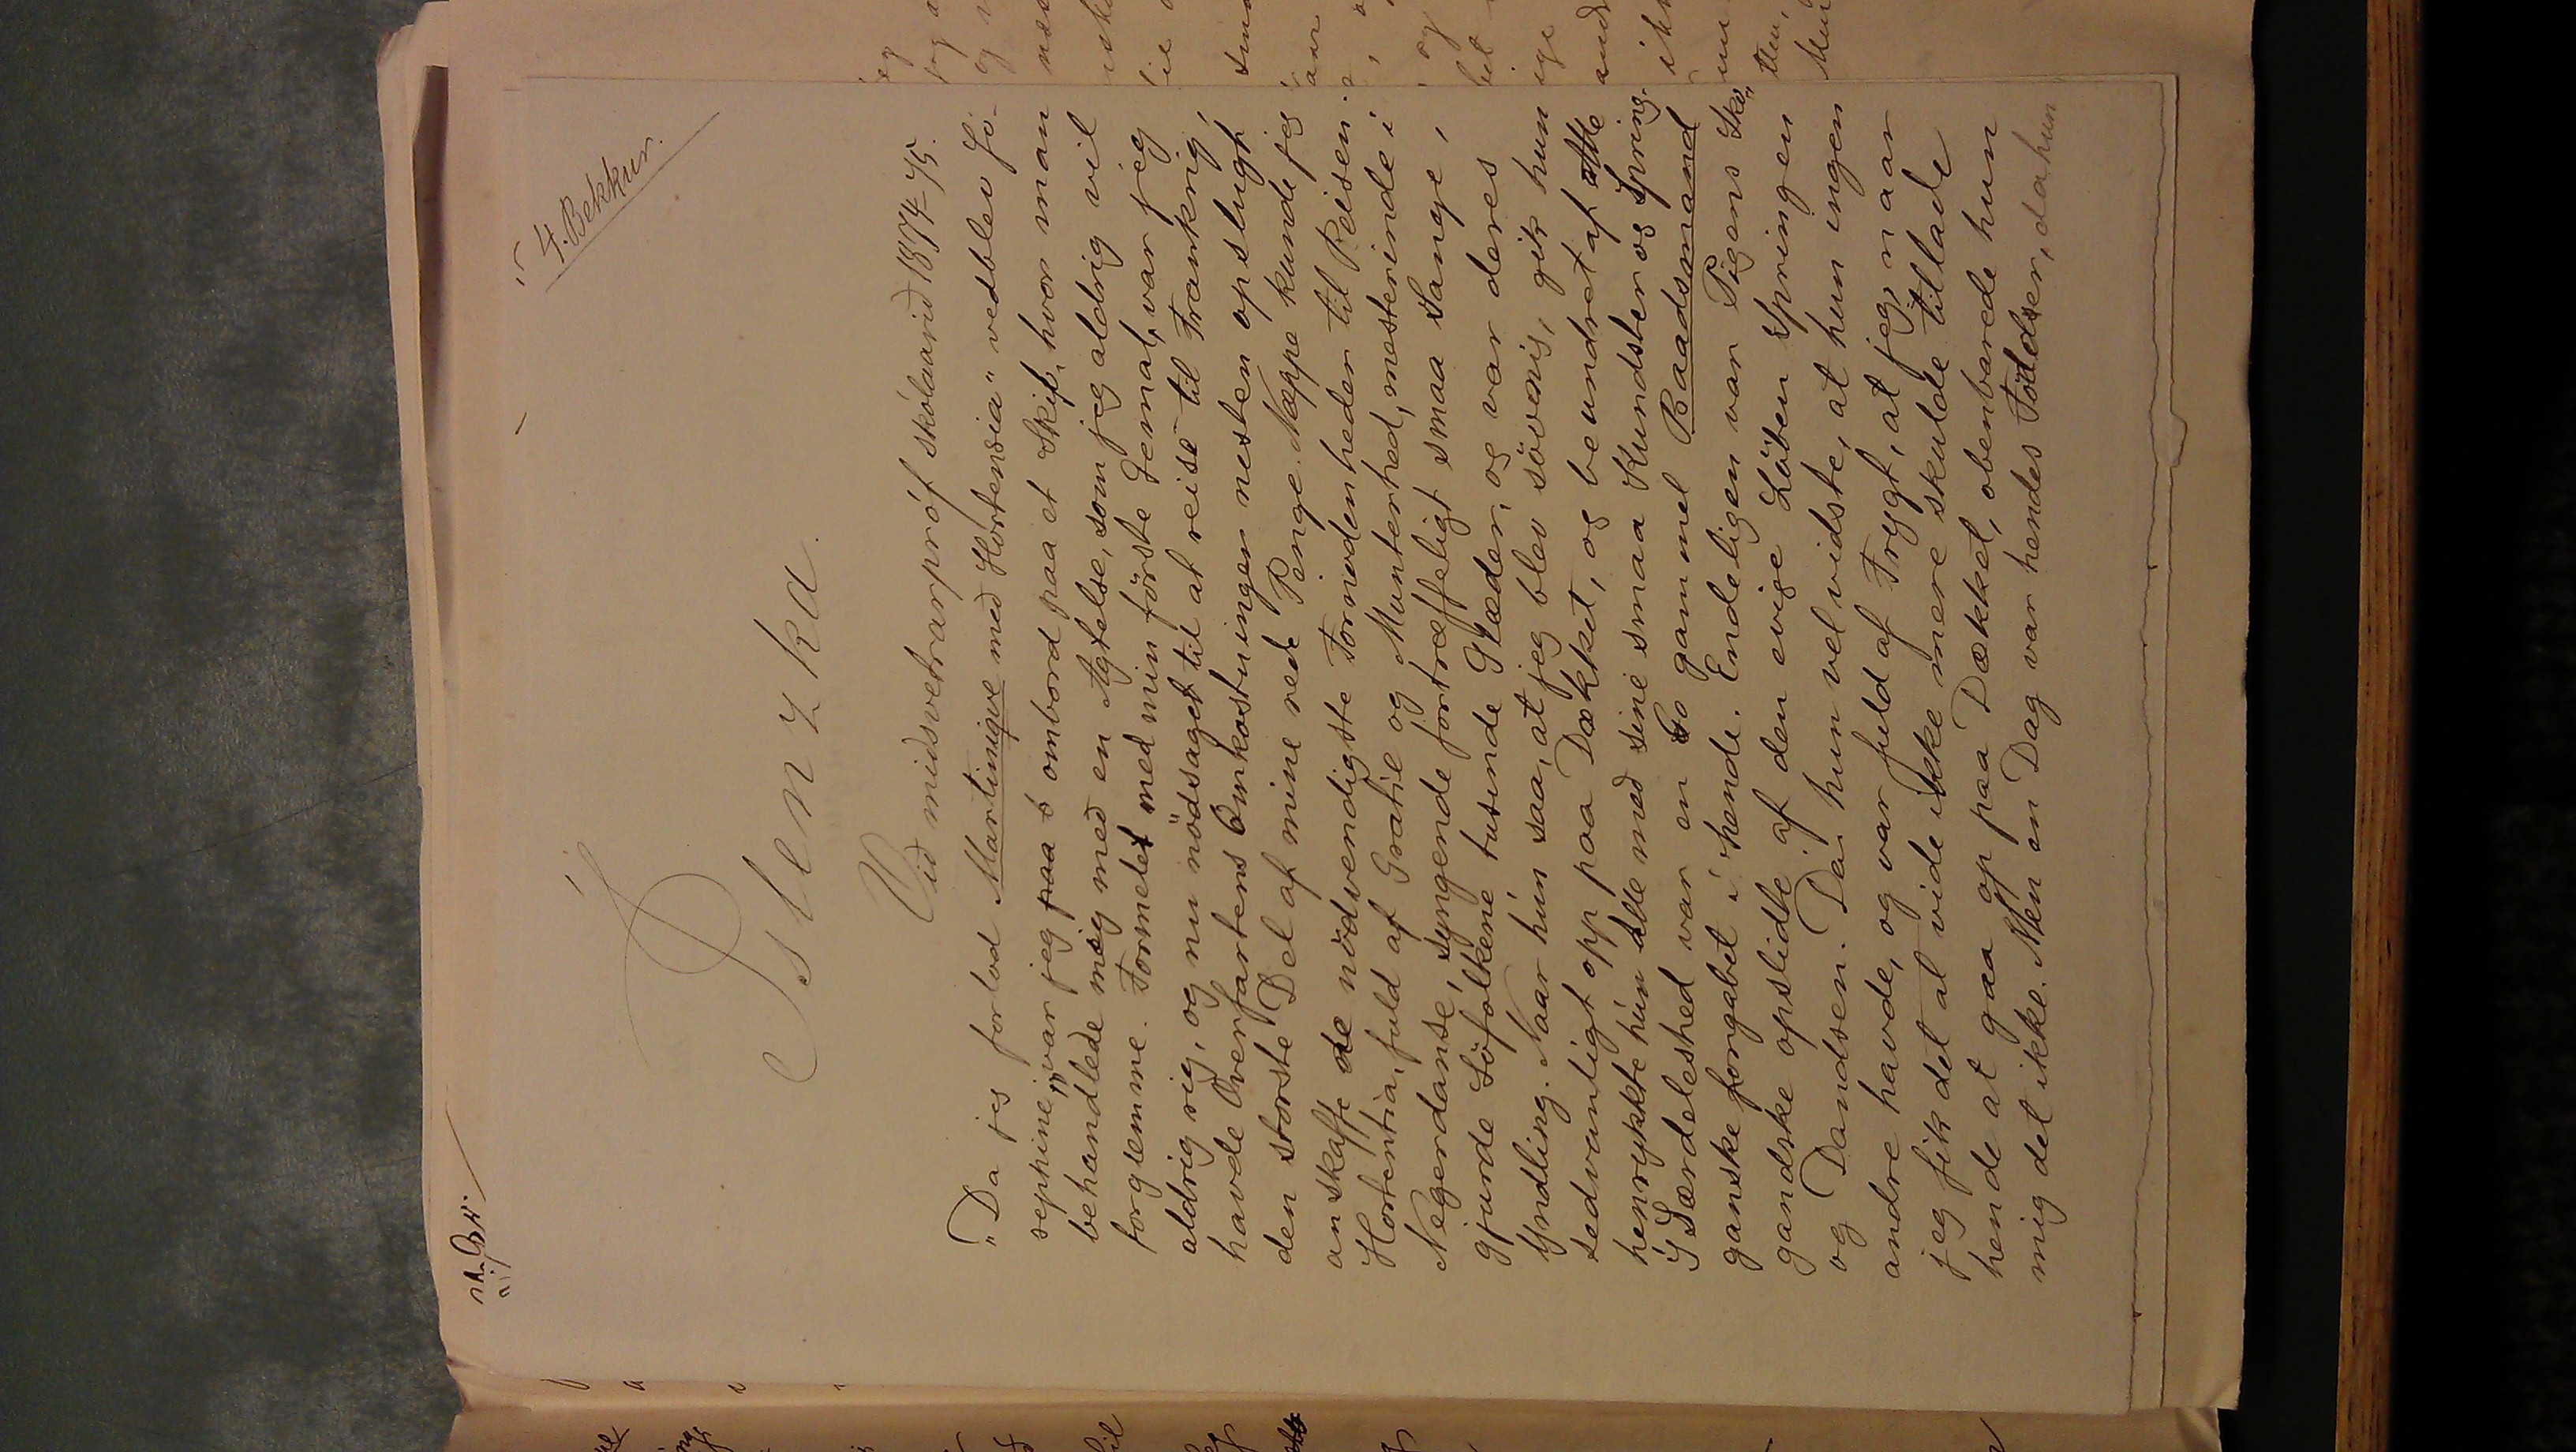 4. Bekkur.
Íslenzka.
Við miðsvetrarpróf skólaarið 1874-75.
"Da jeg forlod Martinique med Hortensia" vedblev Jo-
sephine, "var jeg paa ombord paa et Skip, hvor man
behandlede mig med en Agtelse, som jeg aldrig vil
forglemme. Formelet med min förste Gemal, var jeg
aldrig rig, og nu nödsaget til at reise til Frankrig,
havde Overfartens Omkostningen nesten opslugt
den störste Del af mine rede Penge. Næppe kunde jeg
anskaffe de nödvendigste Fornödenheder til Reisen.
Hortentia, fuld af Gratie og Munterhed, mesterinde i
Negerdanse, syngende fortræffeligt smaa Sange,
gjurde Söfolkene tusinde Glæder, og var deres
Yndling. Naar hún saa, at jeg blev sövnig, gik hun
sedvanligt opp paa Dækket, og beundret af Alle
henrykkte hún Alle með sine smaa Kundster og Spring.
I Særdeleshed var en gammel Baadsmand
ganske forngabet i hende. Endeligen var Pigens Sko
gandske opslidte af den evige Löben Springen
og Dandsen. Da hun vel vidste, at hun ingen
andre havde, og var fuld af Frygt, at jeg, naar
jeg fik det at vide ikke mere skulde tillade
hende at gaa op paa Dækket, obenbarede hun
mig det ikke. Men en Dag var hendes Födder, da hun